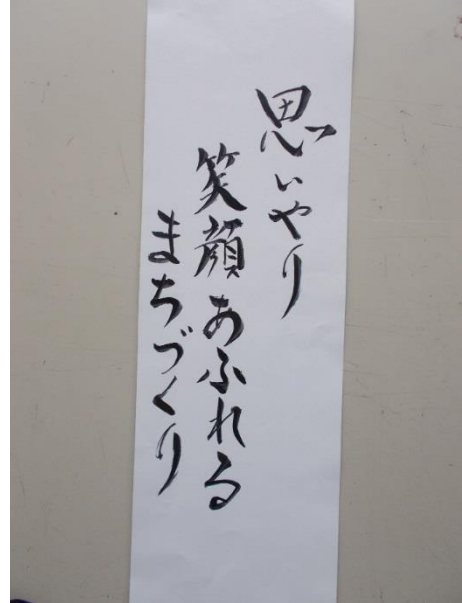 思いやり
笑顔あふれる
まちづくり